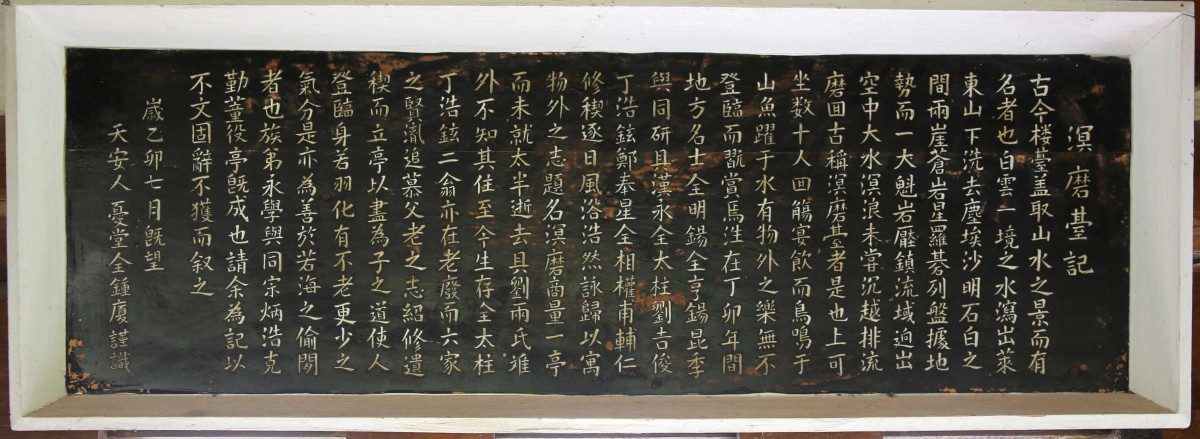 溟磨臺記
古今楼臺盖取山水之景而有
名者也白雲一境之水瀉出萊
東山下洗去塵埃沙明石白之
間兩崖蒼岩星羅碁列盤據地
勢而一大魁岩壓鎮流域逈出
空中大水溟浪未甞沉越排流
磨回古稱溟磨臺者是也上可
坐数十人回觴宴飮而鳥鳴于
山魚躍于水有物外之樂無不
登臨而翫賞焉徃在丁卯年間
地方名士全明錫全亨錫昆季
與同研具漢永全太柱劉吉俊
丁浩鉉鄭奉星全相權甫輔仁
修稧逐日風浴浩然詠歸以寓
物外之志題名溟磨商量一亭
而未就太半逝去具劉兩氏雖
外不知其住至今生存全太柱
丁浩鉉二翁亦在老廢而六家
之賢胤追慕父老之志紹修遺
稧而立亭以盡為子之道使人
登臨身若羽化有不老更少之
氣分是亦為善於若海之偷閑
者也族弟永學與同宗炳浩克
勤董役亭旣成也請余為記以
不文固辭不獲而叙之
歲乙卯七月旣望
天安人憂堂全鍾厦謹識